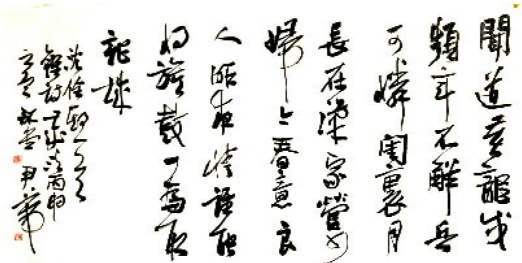 聞道黃龍戍
頻年不解兵
可憐閨裏月
長在漢家營少
婦今春意良
人昨夜情誰能
將旗鼓一為取
龍城
沈佺期
雜詩 丙申
尹